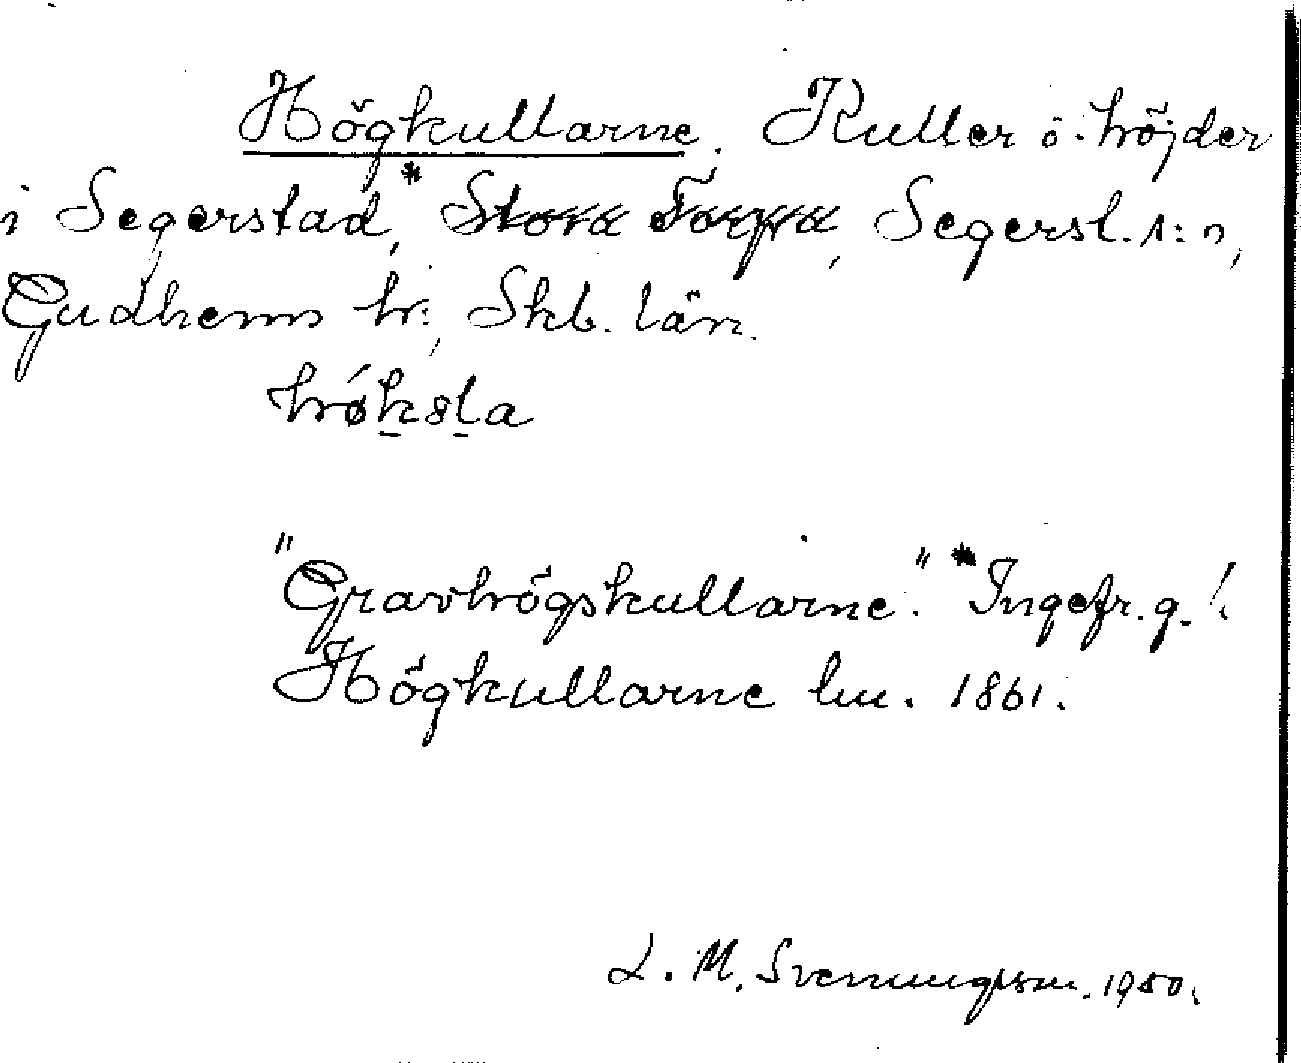 Högkullarne. Kullar o. höjder
i Segerstad,* Stora Torpa, Segerst. s:n,
Gudhems hr, Skb. län.
hǿksla
"Gravhögskullarne." * Ingefr. g. !
Högkullarne lm. 1861.
L. M. Svenungsson. 1950.